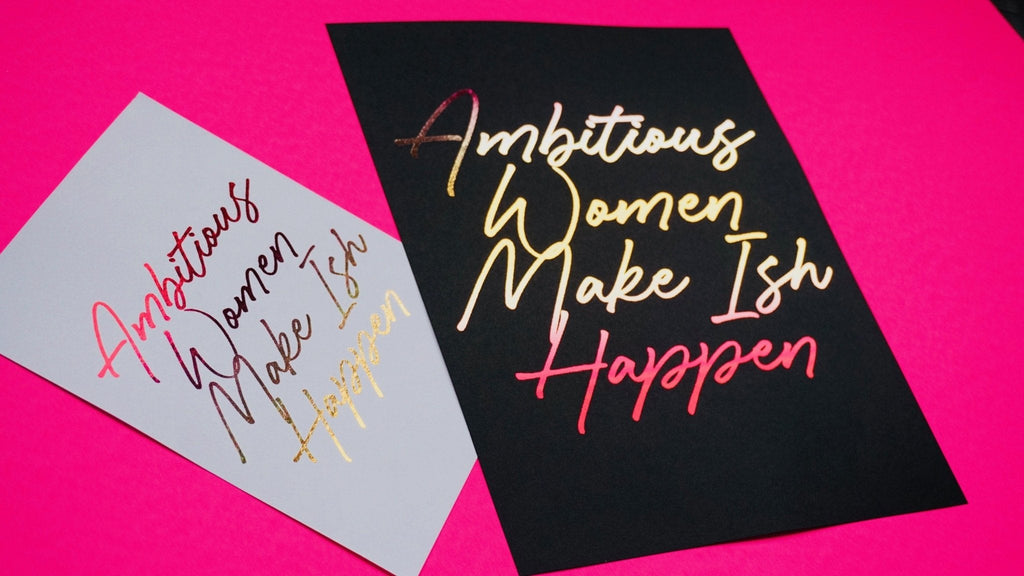 Ambitious
Women
Make Ish
Happen
Ambitious
Women
Make Ish
Happen